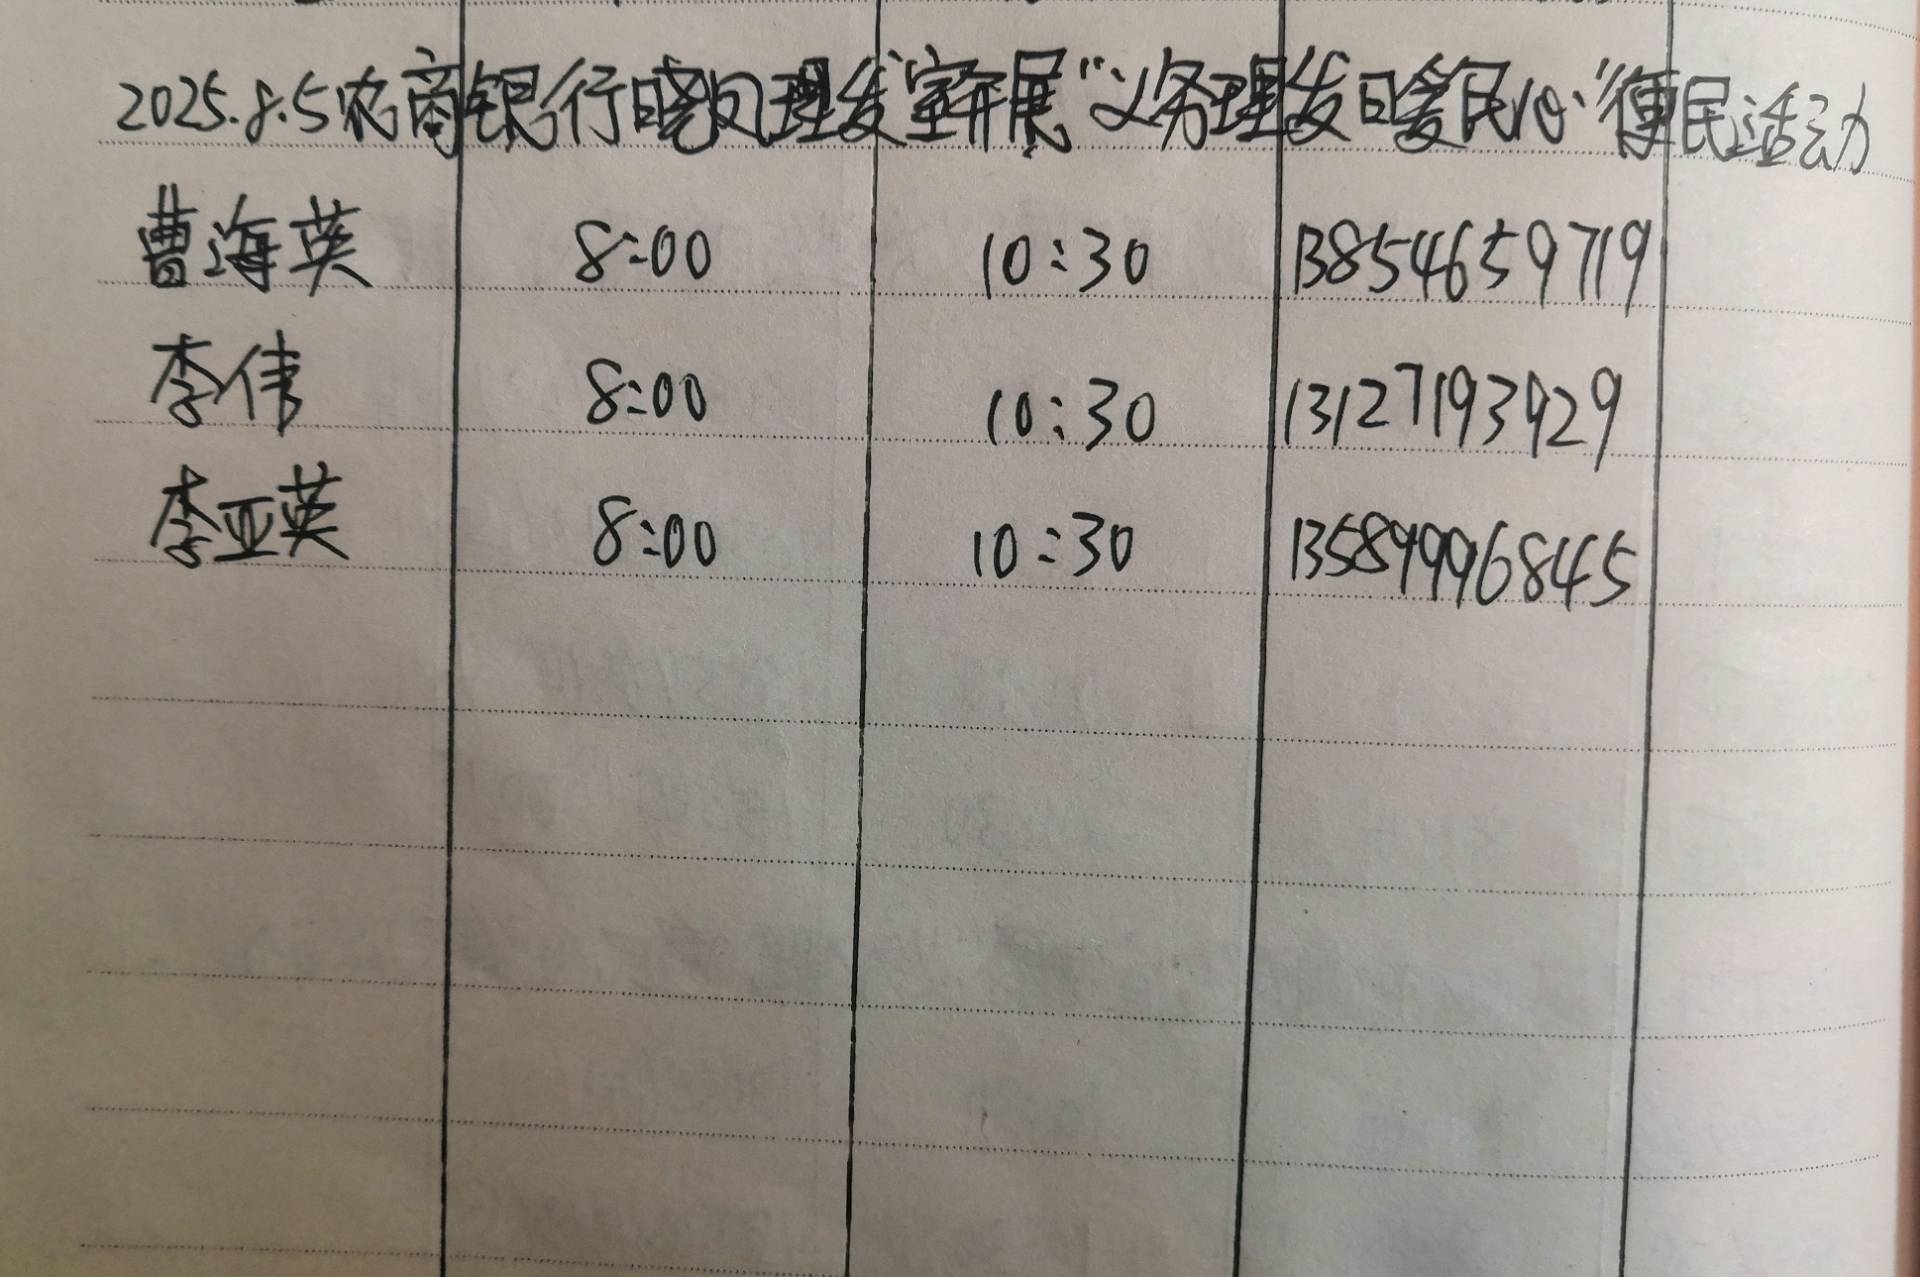 2025.8.5农商银行暖风理发室开展“义务理发日暖民心”便民活动
曹海英 8:00 10:30 13854659719
李伟 8:00 10:30 13127193929
李亚英 8:00 10:30 13589996845